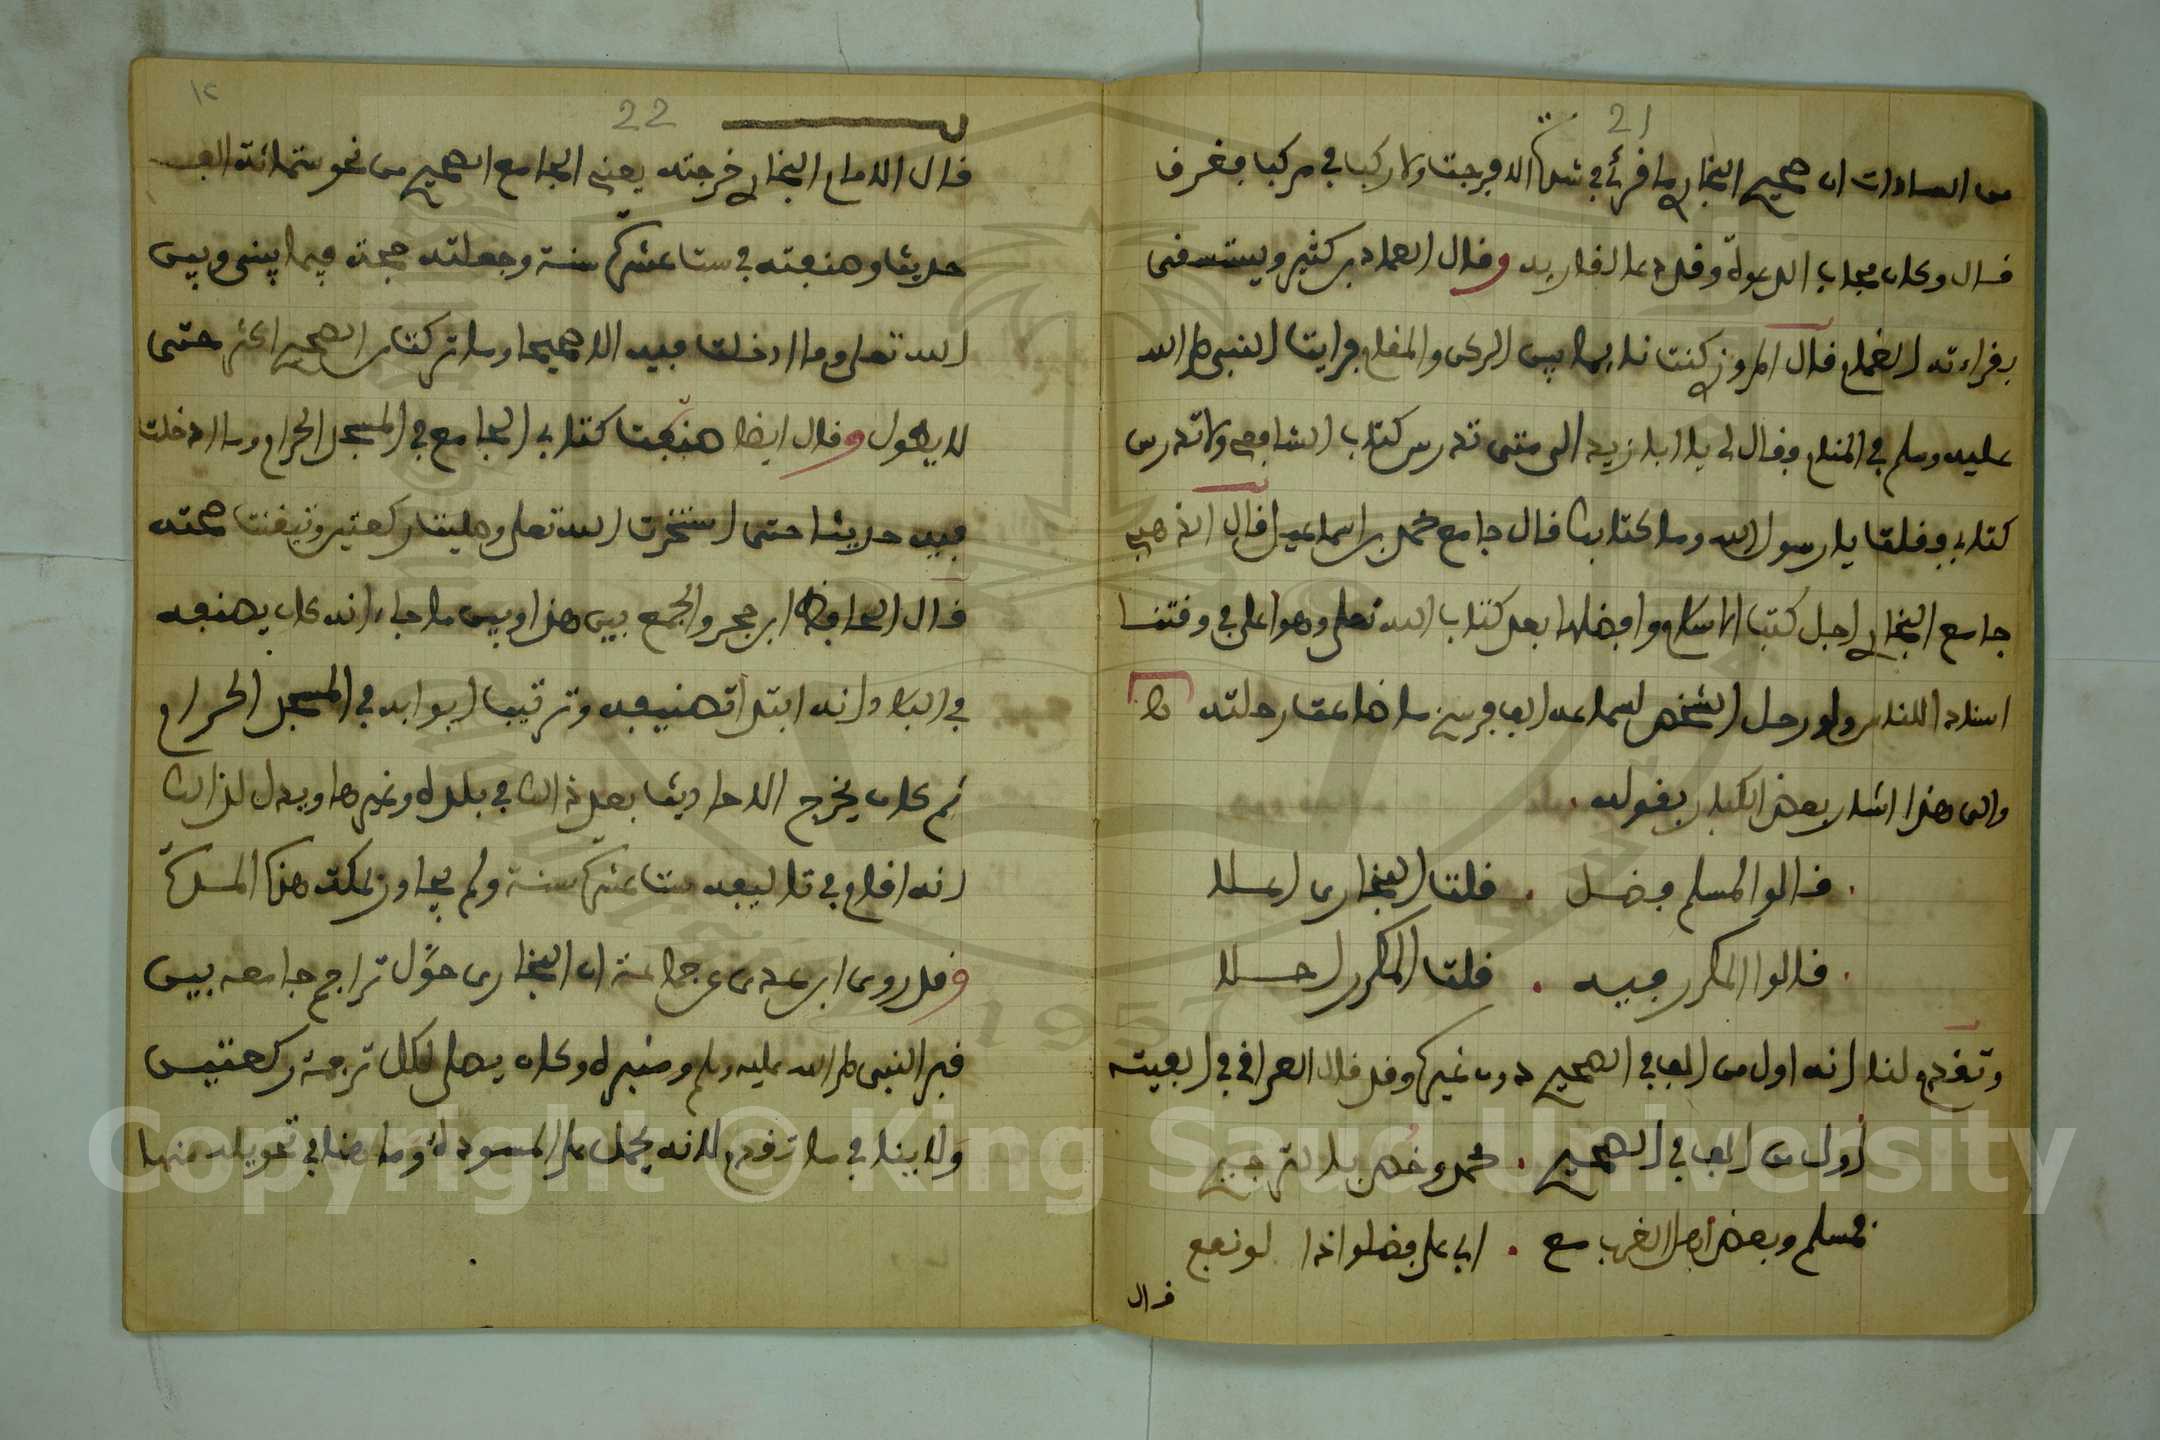 21
من السادات ان صحيح البخاري ما قرئ في شدة الا فرجت ولا ركب في مركب فغرق
قال وكان مجاب الدعوة وقد دعا لقاريه وقال العماد بن كثير ويستسقى
بقراءته الغمام قال المروزي كنت نايما بين الركن والمقام فرايت النبي صلى الله
عليه وسلم في المنام فقال لي يا ابا زيد الى متى تدرس كتاب الشافعي ولا تدرس
كتابي فقلت يا رسول الله وما كتابك قال جامع محمد بن اسماعيل قال الذهبي
جامع البخاري اجل كتب الاسلام وافضلها بعد كتاب الله تعلى وهو اعلى في وقتنا
اسنادا للناس ولو رحل الشخص لسماعه الف فرسخ ما ضاعت رحلته ط
والى هذا اشار بعض الكبار بقوله
قالوا لمسلم فضل . قلت البخارى اعلا
قالوا المكرر فيه . قلت المكرر احلا
وتقدم لنا انه اول من الف في الصحيح دون غيره وقد قال العراقي في الفيته
اول من الف في الصحيح . محمد وخص بالترجيح
فمسلم وبعض اهل الغرب مع . ابي علي فضلوا ذا لو نفع
قال
١٢
22
قال الامام البخاري خرجته يعني الجامع الصحيح من نحو ستمائة الف
حديث وصنفته في ست عشرة سنة وجعلته حجة فيما بيني وبين
الله تعلى وما ادخلت فيه الا صحيحا وما تركت من الصحيح اكثر حتى
لا يطول وقال ايضا صنفت كتابي الجامع في المسجد الحرام وما ادخلت
فيه حديثا حتى استخرت الله تعلى وصليت ركعتين وتيقنت صحته
قال الحافظ ابن حجر والجمع بين هذا وبين ما جاء انه كان يصنفه
في البلاد انه ابتدأ تصنيفه وترتيب ابوابه في المسجد الحرام
ثم كان يخرج الاحاديث بعد ذالك في بلده وغيرها ويدل لذالك
انه اقام في تاليفه ست عشرة سنة ولم يجاور بمكة هذه المدة
وقد روى ابن عدي عن جماعة ان البخارى حوّل تراجم جامعه بين
قبر النبي صلى الله عليه وسلم ومنبره وكان يصلي لكل ترجمة ركعتين
ولا ينافي ما تقدم لانه يحمل على المسودة وما هنا في تحويله منها